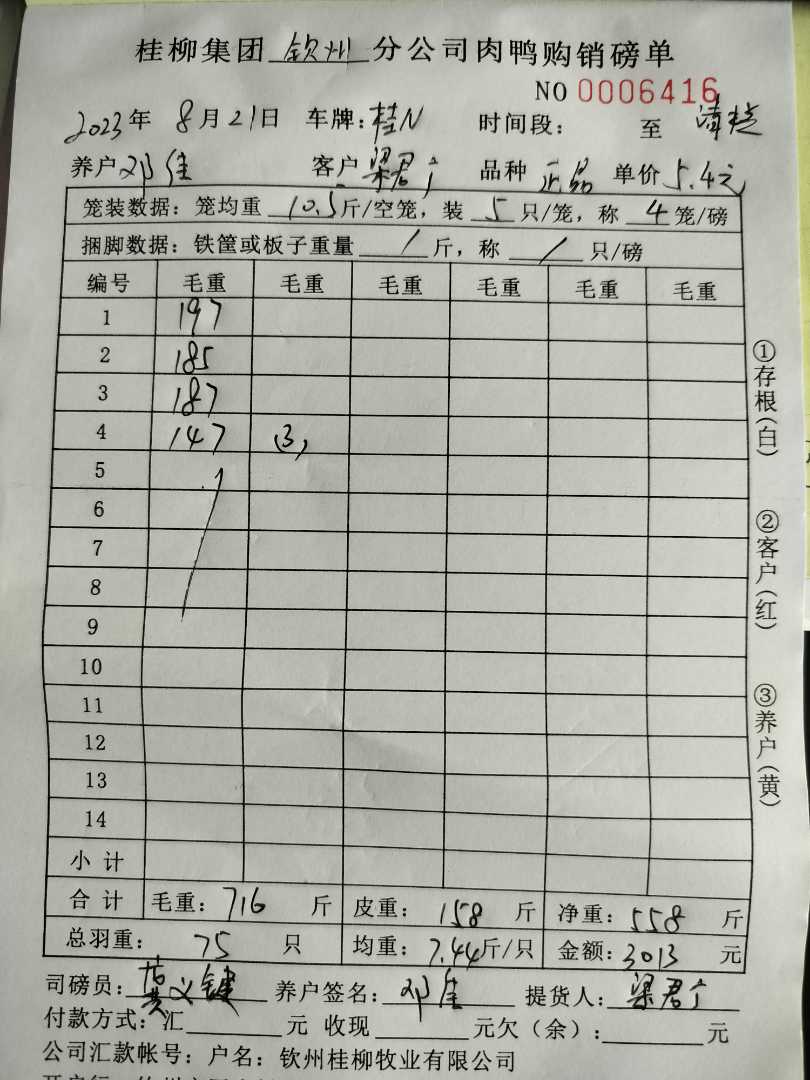 桂柳集团 钦州 分公司肉鸭购销磅单
NO 0006416
2023年 8月21日 车牌:桂N 时间段: 至
养户 邓佳 客户 梁君广 品种 正品 单价 5.4元
笼装数据:笼均重 10.5 斤/空笼,装 5 只/笼,称 4 笼/磅
捆脚数据:铁筐或板子重量 / 斤,称 / 只/磅
编号 毛重 毛重 毛重 毛重 毛重 毛重
1 197
2 185
3 187
4 147 (3)
5
6
7
8
9
10
11
12
13
14
小计
合计 毛重: 716 斤 皮重: 158 斤 净重: 558 斤
总羽重: 75 只 均重: 7.44斤/只 金额: 3013 元
司磅员: 黄义键 养户签名: 邓佳 提货人: 梁君广
付款方式:汇 元 收现 元欠(余): 元
公司汇款帐号:户名:钦州桂柳牧业有限公司
①存根(白)
②客户(红)
③养户(黄)